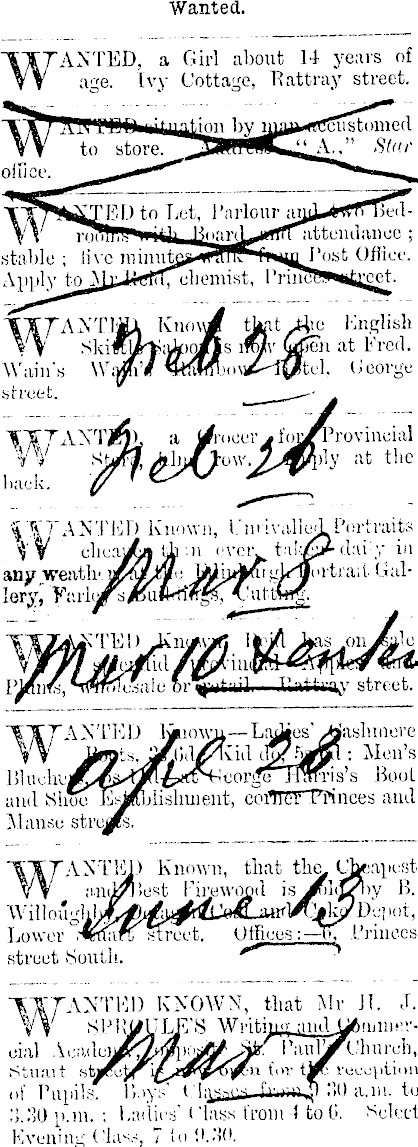 Wanted.
WANTED, a Girl about 14 years of
age. Ivy Cottage, Rattray street.
WANTED situation by man accustomed
to store. Address "A.," Star
office.
WANTED to Let, Parlour and two Bed-
rooms with Board and attendance;
stable; five minutes walk from Post Office.
Apply to Mr Reid, chemist, Princes street.
WANTED Known that the English
Skittle Saloon is now open at Fred.
Wain's Wain's Rainbow Hotel, George
street.
Feb 28
WANTED, a Grocer for Provincial
Store, row. Apply at the
back.
Feb 26
WANTED Known, Unrivalled Portraits
cheaper than ever, taken daily in
any weather at the Edinburgh Portrait Gal-
lery, Farley's Buildings, Cutting.
Mar 8
WANTED Known, Reid has on sale
splendid provincial Apples and
Plants, wholesale or retail. Rattray street.
Mar 10
WANTED Known—Ladies' Cashmere
Boots, 6d; Kid do, 5s; Men's
Bluchers, at George Harris's Boot
and Shoe Establishment, corner Princes and
Manse streets.
Apl 28
WANTED Known, that the Cheapest
and Best Firewood is sold by B.
Willoughby, Octagon Coal and Coke Depot,
Lower Stuart street. Offices:—6, Princes
street South.
June 13
WANTED KNOWN, that Mr H. J.
SPROULE'S Writing and Commer-
cial Academy, opposite St. Paul's Church,
Stuart street, is now open for the reception
of Pupils. Boys' Classes from 9 30 a.m. to
3.30 p.m.; Ladies' Class from 4 to 6. Select
Evening Class, 7 to 9.30.
Mar 7